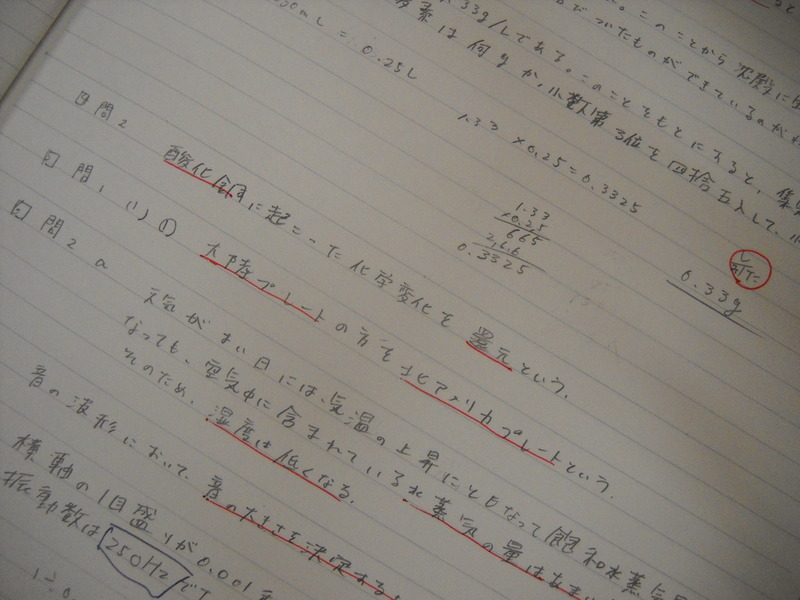 。このことから 実際に
.33g/Lである。このことをもとにすると、集
素は何gか、小数第3位を四捨五入して、小
mL = 0.25L
1.33 ×0.25 = 0.3325
1.33
×0.25
665
2,6.6
0.3325
0.33g
4 問2 酸化銅に起こった化学変化を 還元という。
5 問1 (1) ① 大陸プレートの方を北アメリカプレートという。
6 問2 a 天気がよい日には、気温の上昇にともなって飽和水蒸気
なっても、空気中に含まれている水蒸気の量はあまり
そのため、湿度は低くなる。
音の波形において、音の大きさを決定する
横軸の1目盛りが0.001
振動数は 250Hz で